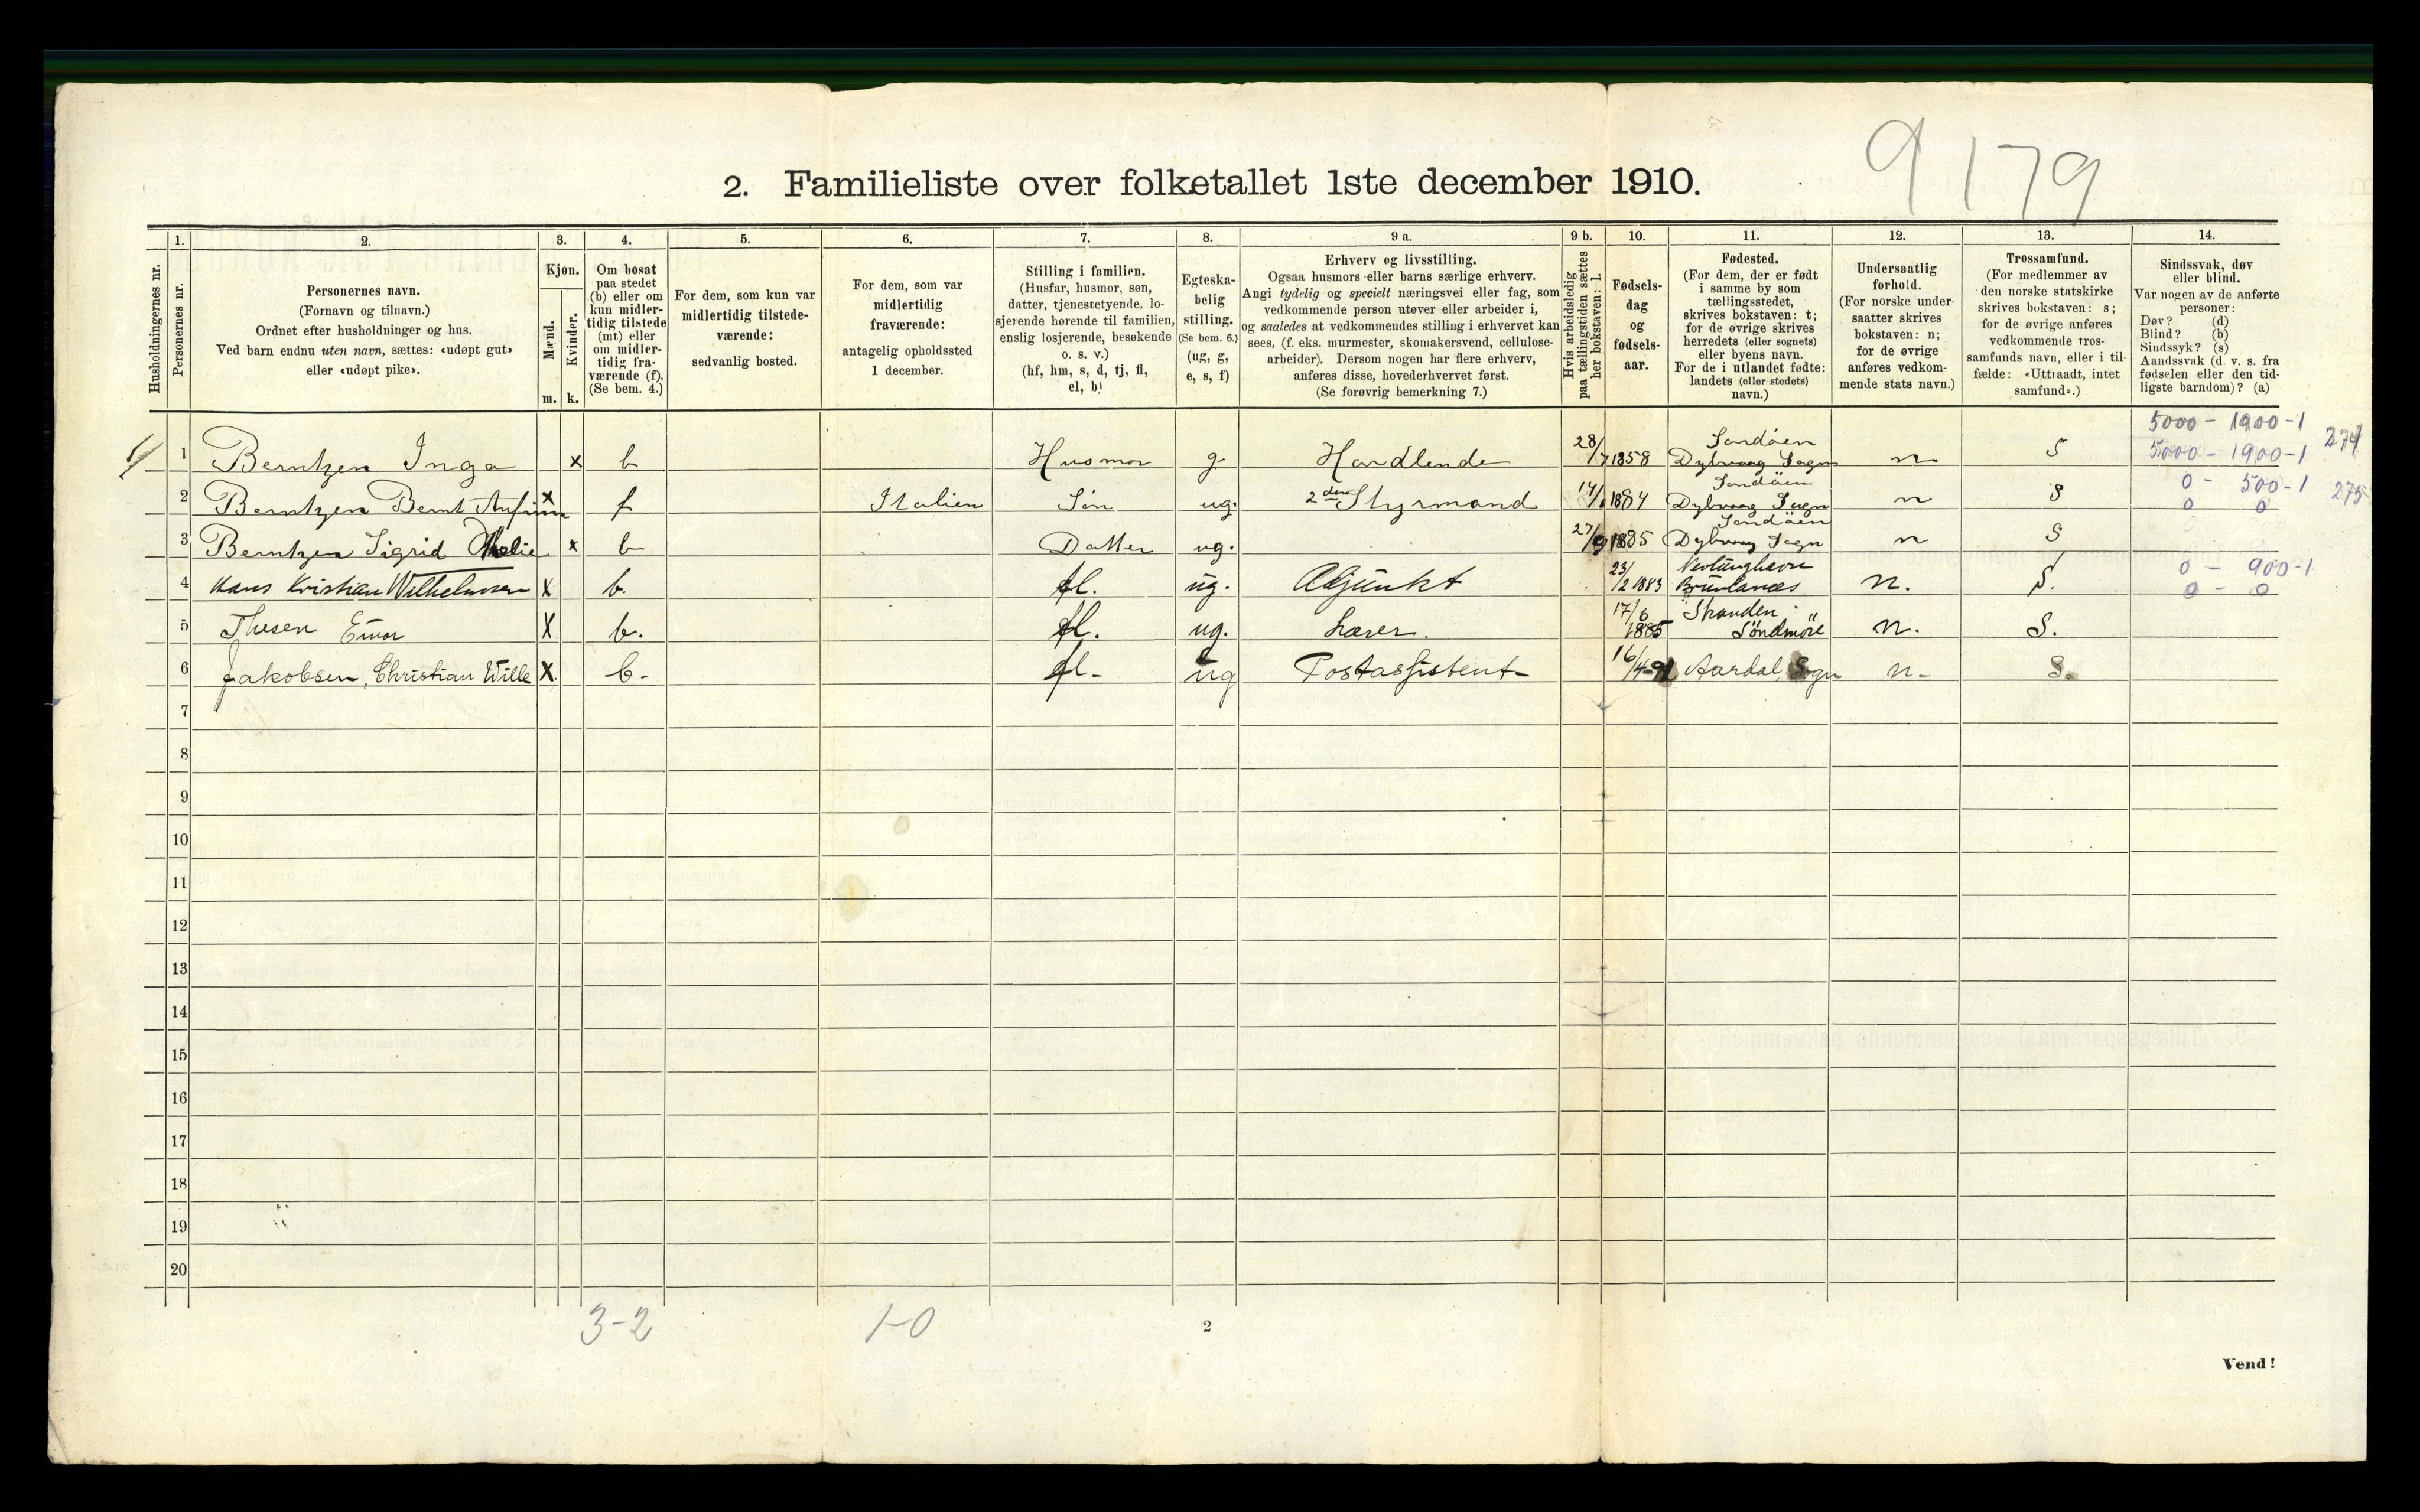 9 179
2. Familieliste over folketallet 1ste december 1910.
Husholdningernes nr.
1.
Personernes nr.
2.
Personernes navn.
(Fornavn og tilnavn.)
Ordnet efter husholdninger og hus.
Ved barn endnu uten navn, sættes: «udøpt gut»
eller «udøpt pike».
3.
Kjøn.
Mænd.
Kvinder.
m. k.
4.
Om bosat
paa stedet
(b) eller om
kun midler-
tidig tilstede
(mt) eller
om midler-
tidig fra-
værende (f).
(Se bem. 4.)
5.
For dem, som kun var
midlertidig tilstede-
værende:
sedvanlig bosted.
6.
For dem, som var
midlertidig
fraværende:
antagelig opholdssted
1 december.
7.
Stilling i familien.
(Husfar, husmor, søn,
datter, tjenestetyende, lo-
sjerende hørende til familien,
enslig losjerende, besøkende
o. s. v.)
(hf, hm, s, d, tj, fl,
el, b)
8.
Egteska-
belig
stilling.
(Se bem. 6.)
(ug, g,
e, s, f)
9 a.
Erhverv og livsstilling.
Ogsaa husmors eller barns særlige erhverv.
Angi tydelig og specielt næringsvei eller fag, som
vedkommende person utøver eller arbeider i,
og saaledes at vedkommendes stilling i erhvervet kan
sees, (f. eks. murmester, skomakersvend, cellulose-
arbeider). Dersom nogen har flere erhverv,
anføres disse, hovederhvervet først.
(Se forøvrig bemerkning 7.)
9 b.
Hvis arbeidsledig
paa tællingstiden sættes
her bokstaven: l.
10.
Fødsels-
dag
og
fødsels-
aar.
11.
Fødested.
(For dem, der er født
i samme by som
tællingsstedet,
skrives bokstaven: t;
for de øvrige skrives
herredets (eller sognets)
eller byens navn.
For de i utlandet fødte:
landets (eller stedets)
navn.)
12.
Undersaatlig
forhold.
(For norske under-
saatter skrives
bokstaven: n;
for de øvrige
anføres vedkom-
mende stats navn.)
13.
Trossamfund.
(For medlemmer av
den norske statskirke
skrives bokstaven: s;
for de øvrige anføres
vedkommende tros-
samfunds navn, eller i til-
fælde: «Uttraadt, intet
samfund».)
14.
Sindssvak, døv
eller blind.
Var nogen av de anførte
personer:
Døv? (d)
Blind? (b)
Sindssyk? (s)
Aandssvak (d. v. s. fra
fødselen eller den tid-
ligste barndom)? (a)
5000 - 1900-1 274
1 Berntzen Inga x b Husmor g Handlende 28/7 1858 Sandöen Dybvaag Sogn n S 5000 - 1900-1
0 - 500-1 275
2 Berntzen Bernt x f Italien Sön ug. 2den Styrmand 1884 Sandöen Dybvaag Sogn n S 0 0
3 Berntzen Sigrid x b Datter ug. 27/9 1885 Sandöen Dybvaag Sogn n S
0 - 900-1
4 Hans Kristian Wilhelmsen x b. fl. ug. Adjunkt 23/2 1883 Nevlunghavn Brunlanæs n. S. 0 - 0
5 Thesen Einar x b. fl. ug. Lærer. 17/6 1885 Stranden Söndmöre n. S.
6 Jakobsen, Christian Wille x. b. fl. ug Postassistent 16/4-91 Aardal, Sogn n. S.
7
8
9
10
11
12
13
14
15
16
17
18
19
20
3-2 1-0
2
Vend!